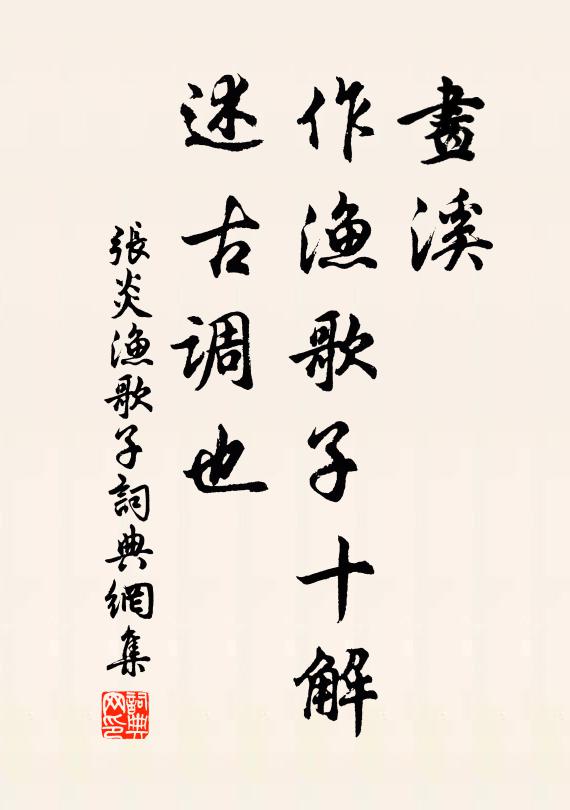 畫溪
作漁歌子十解
述古調也
張炎漁歌子詞典網集
詞典
网印